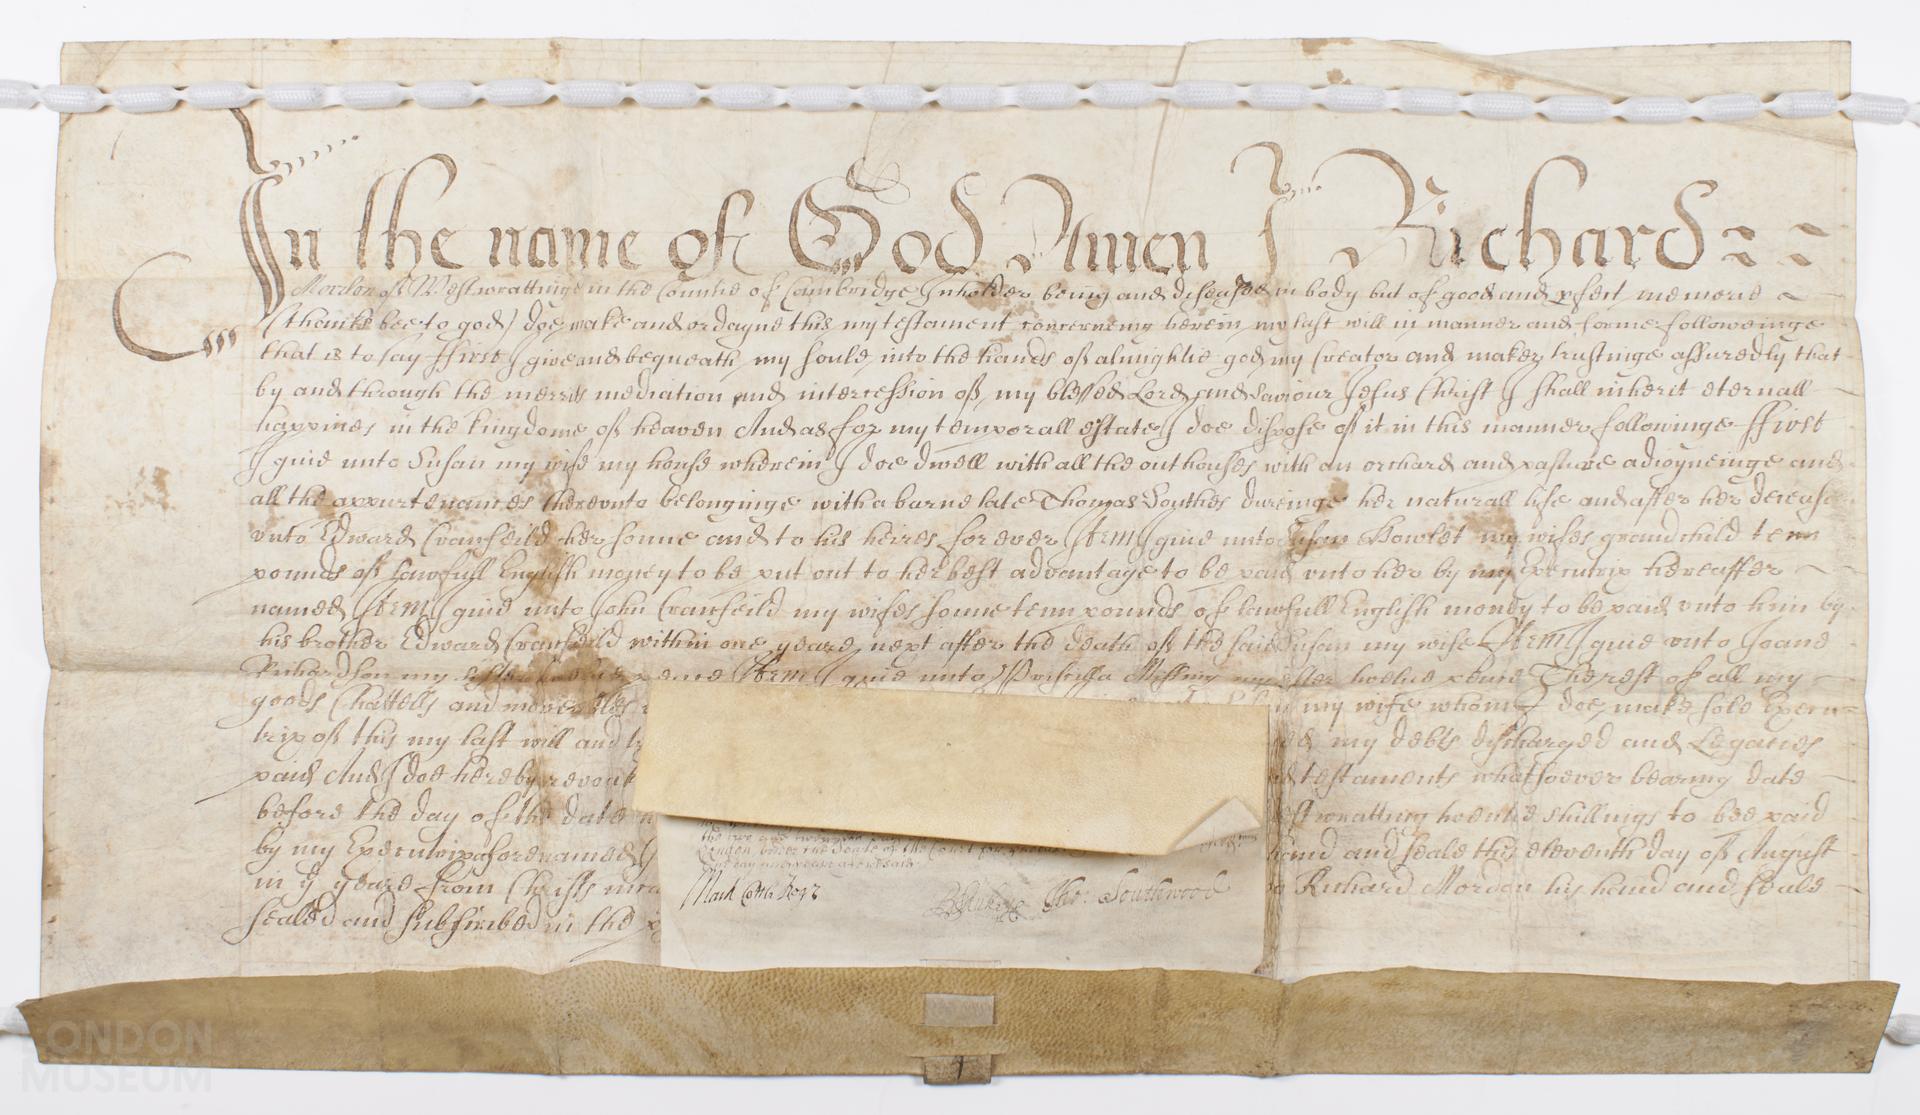 In the name of God Amen I Richard
Mordon of Westwrattinge in the Countie of Cambridge Inholder being and diseased in body but of good and pfect memorie
(thankes bee to god) doe make and ordayne this my testament concerneing herein my last will in manner and forme followeinge
that is to say ffirst I give and bequeath my soule into the hands of almightie god my Creator and maker trustinge assuredly that
by and through the merrits mediation and intercession of my blessed Lord and Saviour Jesus Christ I shall inherit eternall
happines in the kingdome of heaven And as for my temporall estate I doe dispose of it in this manner followinge ffirst
I giue unto Susan my wife my house wherein I doe dwell with all the outhouses with an orchard and pasture adioyneinge and
all the appurtenances therevnto belonginge with a barne late Thomas Southes dureinge her naturall life and after her decease
vnto Edward Cranfeild her sonne and to his heires for ever Item I giue unto Susan Howlet my wifes grandchild tenn
pounds of lawfull English money to be put out to her best advantage to be paid vnto her by my Executrix hereafter
named Item I giue unto John Cranfeild my wifes sonne tenn pounds of lawfull English money to be paid vnto him by
his brother Edward Cranfeild within one yeare next after the death of the said Susan my wife Item I giue vnto Joane
Richardson my sister twelve pence Item I giue unto Priscilla Missing my sister twelve pence The rest of all my
goods Chattells and moveables my wife whome I doe make sole Execu=
trix of this my last will and my debts discharged and Legacies
paid And I doe hereby revoake testaments whatsoever bearing date
before the day of the date wratting twentie shillings to bee paid
by my Executrix aforenamed and seale this eleventh day of August
in ye yeare from Christs Richard Mordon his hand and seale
sealed and subscribed in the
Mark Cottle Regr
Tho: Southwood
LONDON
MUSEUM